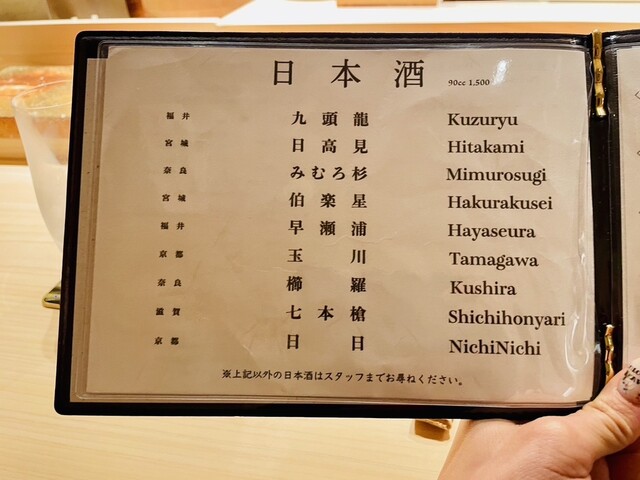 日本酒 90cc 1,500
福井 九頭龍 Kuzuryu
宮城 日高見 Hitakami
奈良 みむろ杉 Mimurosugi
宮城 伯楽星 Hakurakusei
福井 早瀬浦 Hayaseura
京都 玉川 Tamagawa
奈良 櫛羅 Kushira
滋賀 七本槍 Shichihonyari
京都 日日 NichiNichi
※上記以外の日本酒はスタッフまでお尋ねください。